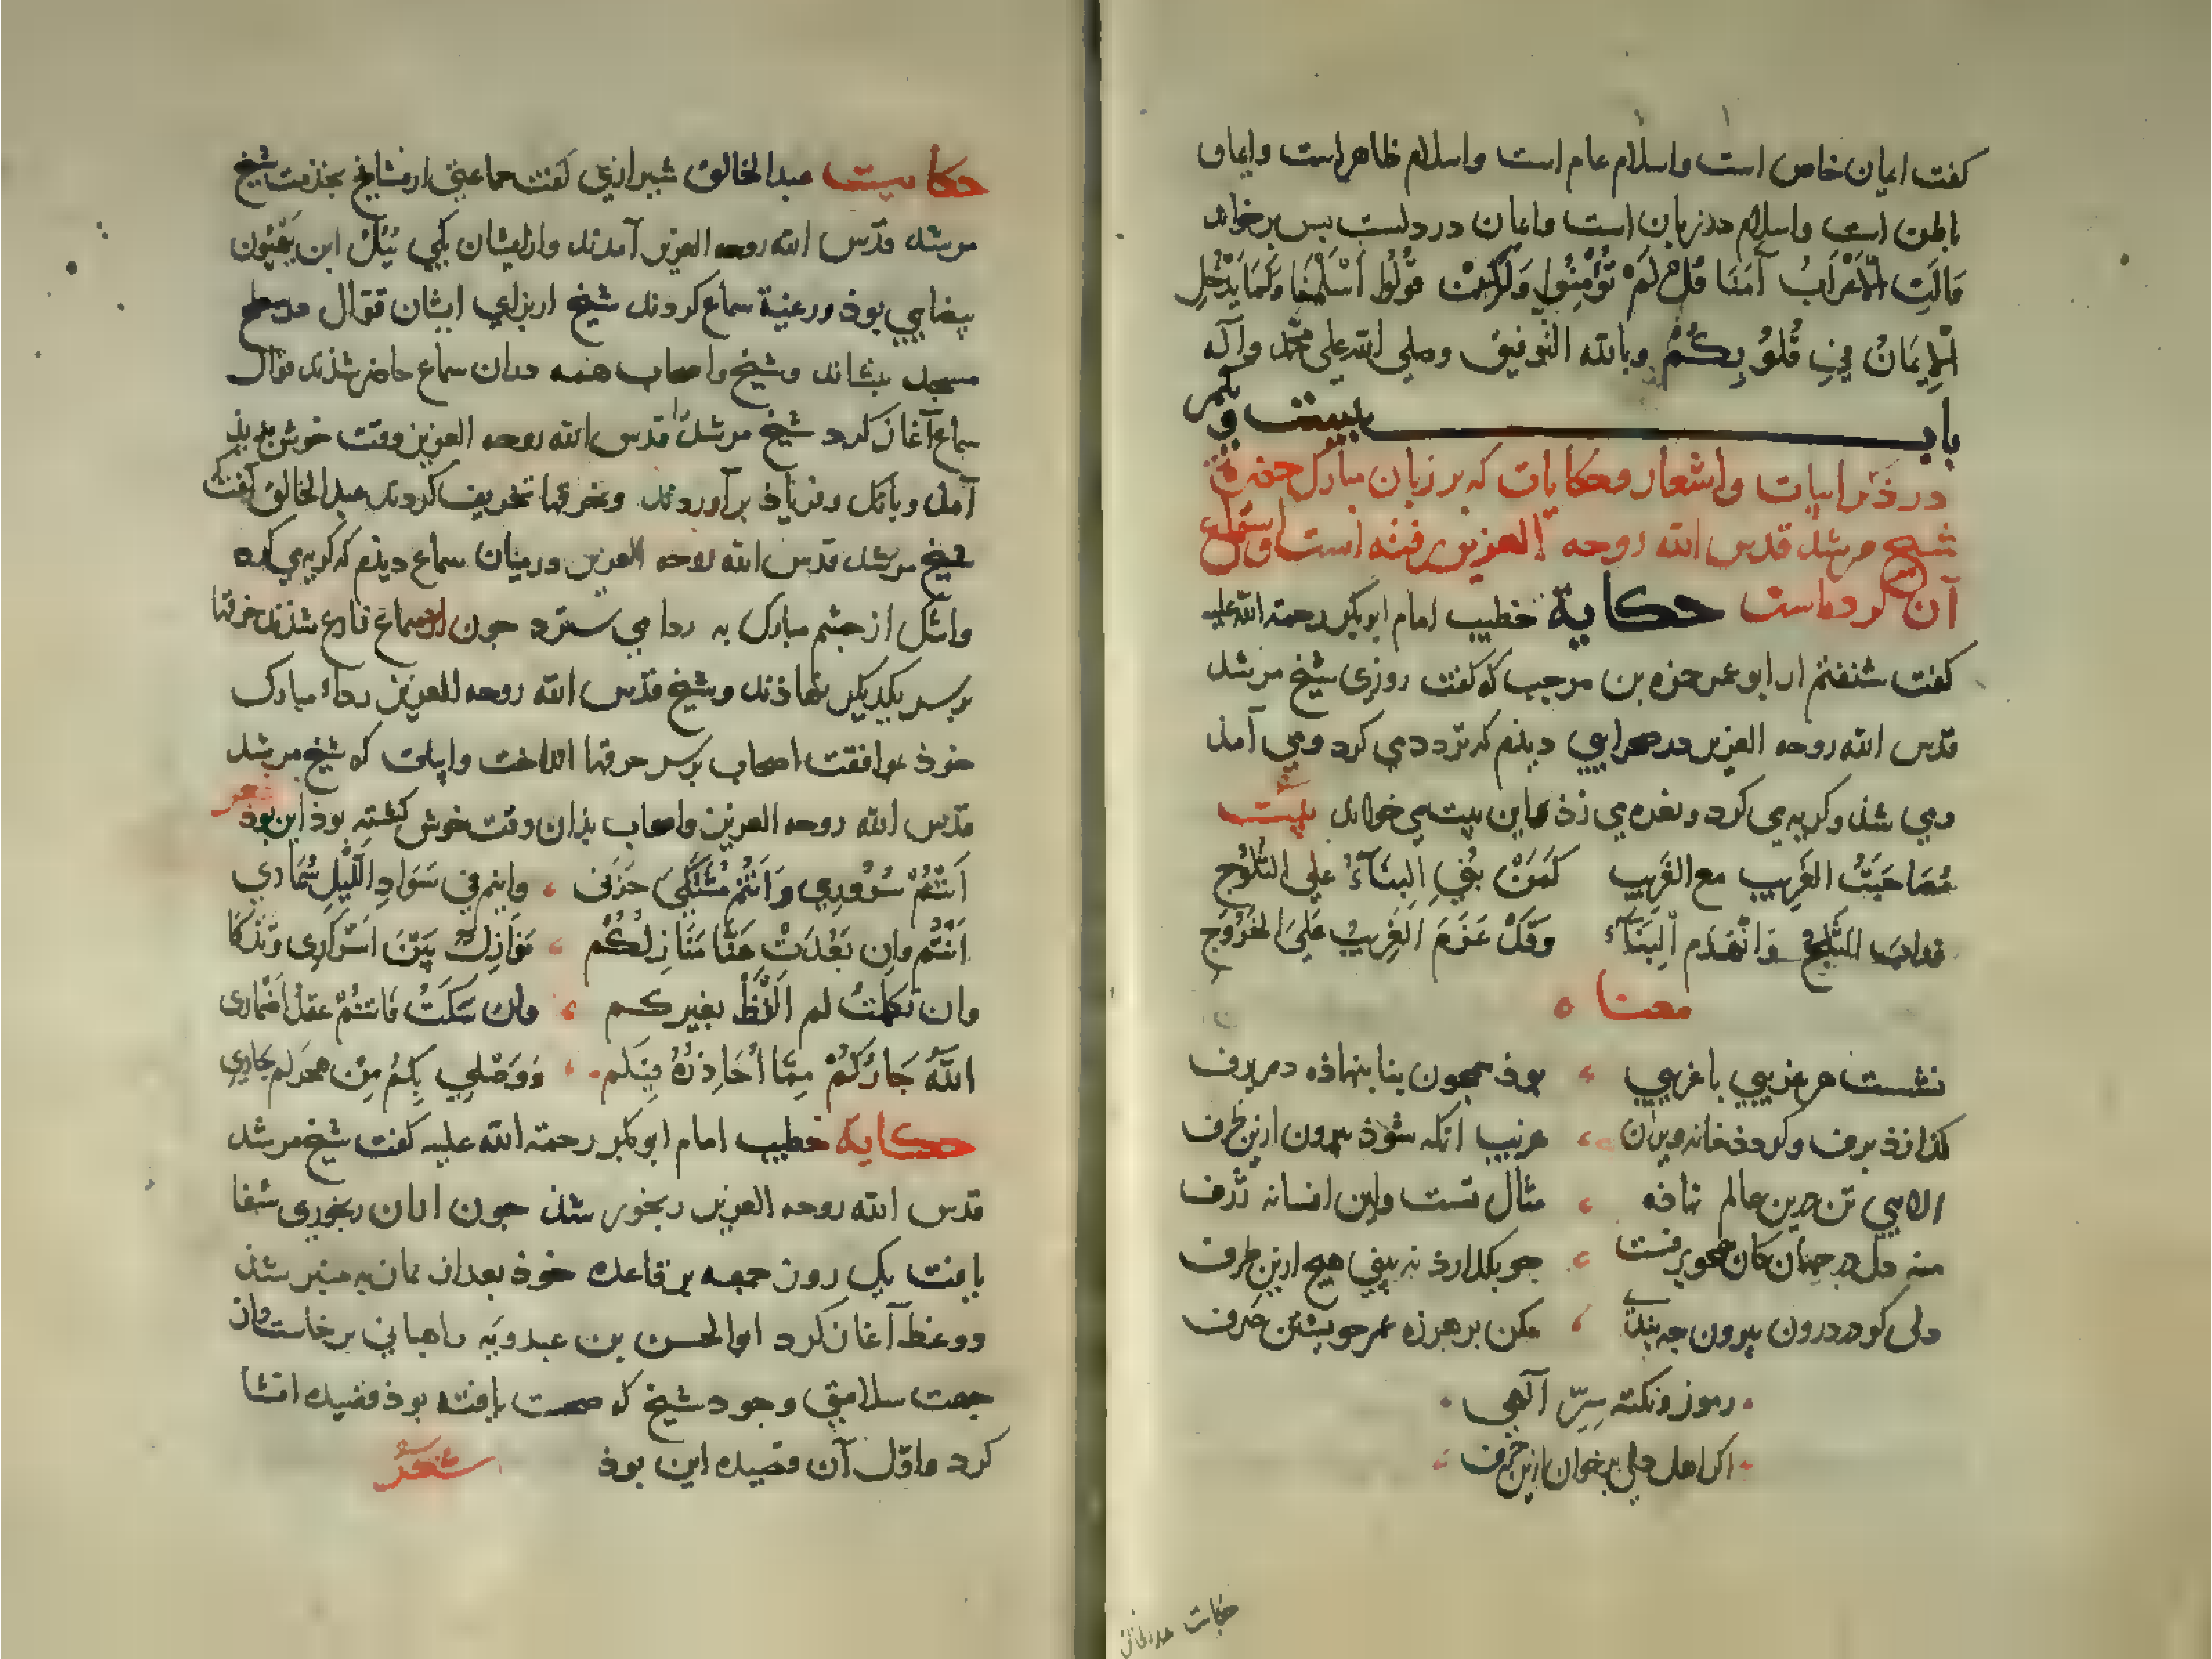 کفت ایمان خاص است واسلام عام است واسلام ظاهر است وایمان
باطن است واسلام در زبان است وایمان در دلست بس برخواند
قَالَتِ الْاَعْرَابُ آمَنَا قُلْ لَمْ تُؤْمِنُوا وَلَكِنْ قُولُوا اَسْلَمْنَا وَلَمَّا يَدْخُلِ
الْاِيمَانُ فِي قُلُوبِكُمْ وبالله التوفيق وصلى الله على محمد وآله
باب بیست و
در ذکر ابیات واشعار وحکایات که بر زبان مبارک حضرة
شیخ مرشد قدس الله روحه العزیز رفته است و
آن کرده است حکایة خطیب امام ابوبکر رحمة الله علیه
کفت شنفتم از ابو عمر حمزه بن مرجب که کفت روزی شیخ مرشد
قدس الله روحه العزیز در صحرایی دیذم که تردد می کرد ومی آمذ
ومی شذ وکریه می کرد ونعره می زذ واین بیت می خواند بیت
مُصَاحَبَتُ الغَرِيبِ مع الغَرِيبِ كَمَنْ بُنِيَ البِنَآءُ على الثُلُوجِ
الثَلْجُ وَانْهَدَمَ البِنَآءُ وَقَدْ عَزَمَ الغَرِيبُ عَلَى الخُرُوجِ
معنا
نشست هر غریبی با غریبی بوذ همجون بنا بنهاذه در برف
کذازذ برف وکردذ خانه ویران غریب انکه شوذ بیرون ازین طرف
الا یی تن درین عالم نهاذه مثال تست واین افسانه ژرف
منه دل در جهان کان برفست جو بکذارذ نه بینی هیج ازین طرف
دلی کو در درون بیرون جه بندی مکن بر هرزه عمر خویشتن صرف
رموز ونکته سِرّ آلهی
اکر اهل دلی برخوان ازین حرف
حکایت عبدالخالق
حکایت عبدالخالق شیرازی کفت جماعتی از مشایخ بخذمت شیخ
مرشد قدس الله روحه العزیز آمدند وازیشان یکی نیک ابن
بیضایی بوذ ورغبة سماع کردند شیخ از برای ایشان قوال در سطح
مسجد بنشاند وشیخ واصحاب همه دران سماع حاضر شذند قوال
سماع آغاز کرد شیخ مرشد قدس الله روحه العزیز وقت خوش
آمذ وبانک وفریاذ برآوردند وخرقها تخریف کردند عبدالخالق کفت
شیخ مرشد قدس الله روحه العزیز در میان سماع دیذم که کریه می کرد
واشک از جشم مبارک به ردا می سترد جون از سماع فارغ شذند خرقها
بر سر یکدیکر نهاذند وشیخ قدس الله روحه العزیز رداء مبارک
خوذ بموافقت اصحاب بر سر خرقها انداخت وابیات که شیخ مرشد
قدس الله روحه العزیز واصحاب بذان وقت خوش کشته بوذ این بوذ شعر
اَنتُمْ سُرُورِي وَاَنتُمْ مُشْتَكَى حَزَنی وانتم في سَوَادِ اللَّيلِ سُمَّاري
اَنتُمْ وان بَعُدَتْ عَنَّا مَنَازِلُكُم نَوَازِلٌ بَيْنَ اَسْرَارِى وَتَذْكَا
وان تكلمتُ لم اَلْفَظْ بغيركم وان سَكَتُّ فَانتُمْ عقد اضمارى
اَللّٰهُ جَارُكُمْ مِمَّا اُحَاذِرُهُ فِيكُم
حکایة خطیب امام ابوبکر رحمة الله علیه کفت شیخ مرشد
قدس الله روحه العزیز رنجور شذ جون ازان رنجوری شفا
یافت یک روز جمعه بر قاعده خوذ بعد از نماز به منبر شذ
ووعظ آغاز کرد ابوالحسن بن عبدویه راهبانی برخاست واز
جهت سلامتی وجود شیخ که صحت یافته بوذ قصیده انشا
کرد واول آن قصیده این بوذ شعر